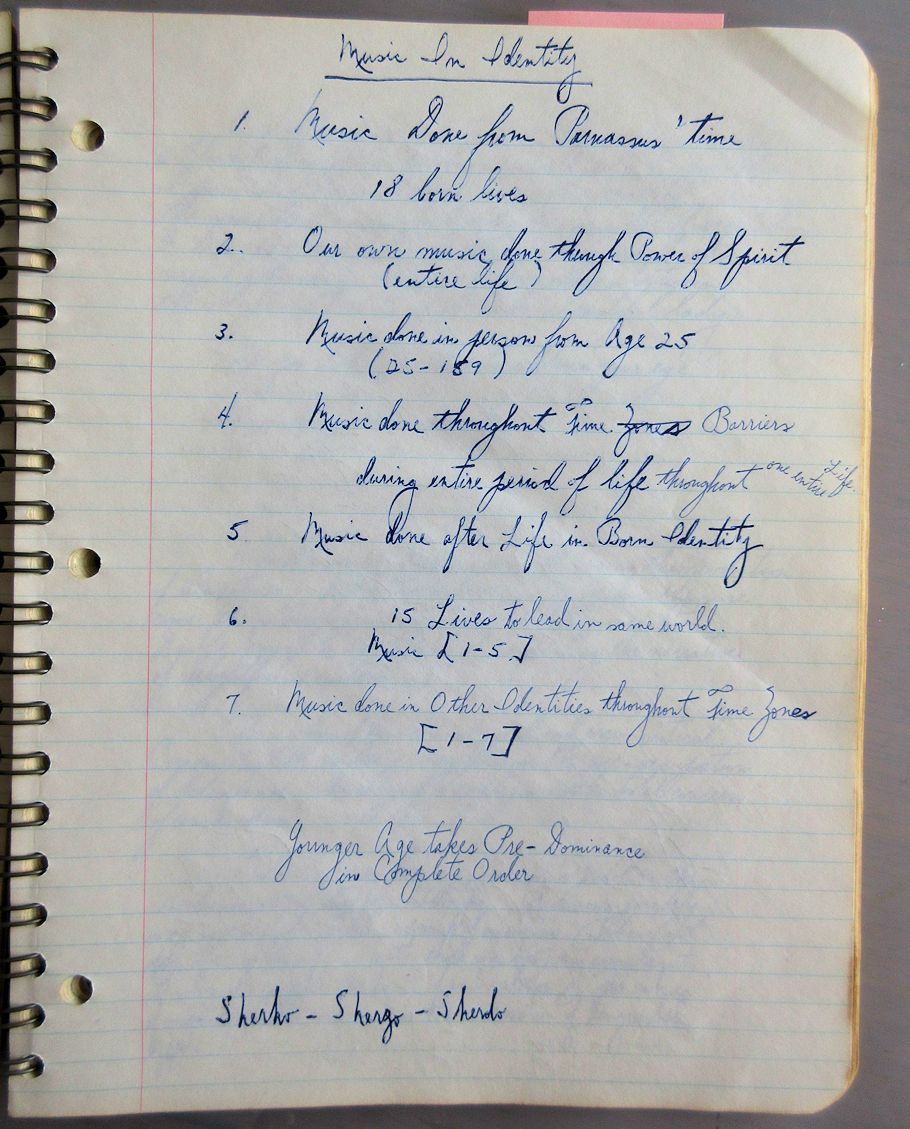 Music In Identity
1. Music Done from Parnassus' time
18 born lives
2. Our own music done through Power of Spirit
(entire life)
3. Music done in person from Age 25
(25-189)
4. Music done throughout Time Zones Barriers
during entire period of life throughout one entire Life.
5 Music done after Life in Born Identity
6. 15 Lives to lead in same world.
Music [1-5]
7. Music done in Other Identities throughout Time Zones
[1-7]
Younger Age takes Pre-Dominance
in Complete Order
Sherko - Shergo - Sherdo